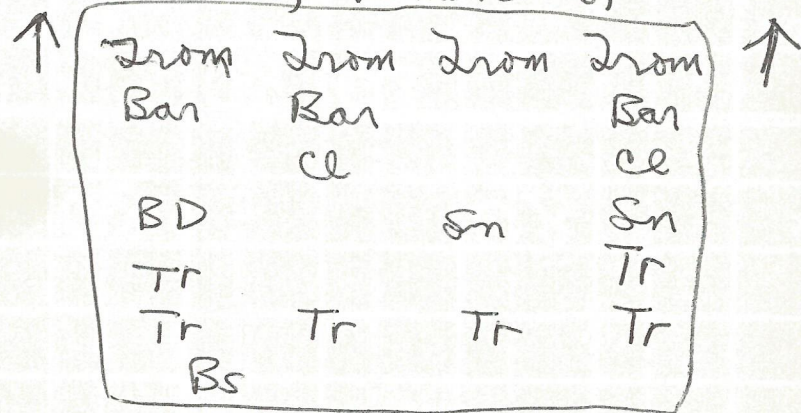 Trom Trom Trom Trom
Bar Bar Bar
Cl Cl
BD Sn Sn
Tr Tr
Tr Tr Tr Tr
Bs